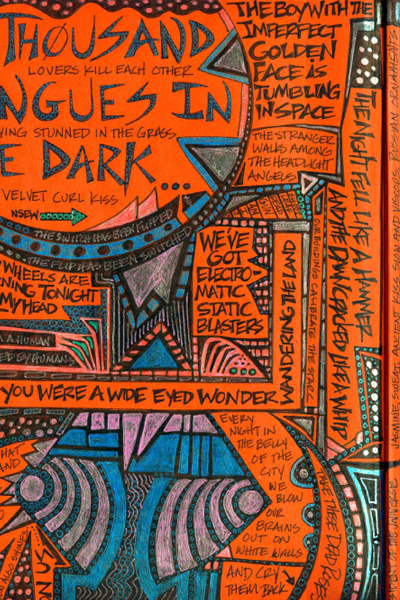 THOUSAND
LOVERS KILL EACH OTHER
NGUES IN
YING STUNNED IN THE GRASS
E DARK...
VELVET CURL KISS
NSEW
THE SWITCH HAS BEEN FLIPPED
THE FLIP HAS BEEN SWITCHED
WHEELS ARE
NING TONIGHT
MY HEAD
A HUMAN
ED BY HUMANS
THE BOY WITH THE
IMPERFECT
GOLDEN
FACE AS
TUMBLING
IN SPACE
THE STRANGER
WALKS AMONG
THE HEADLIGHT
ANGELS
WE'VE
GOT
ELECTRO-
MATIC
STATIC
BLASTERS
WANDERING THE LAND
OUR BUILDINGS CALIBRATE THE STARS
THE NIGHT FELL LIKE A HAMMER
AND THE DAWN CRACKED LIKE A WHIP
YOU WERE A WIDE EYED WONDER
EVERY
NIGHT IN
THE BELLY
OF THE
CITY
WE
BLOW
OUR
BRAINS
OUT ON
WHITE WALLS
AND CRY
THEM BACK
TAKE THESE DEAD
HAT
AND
JASMINE, SWEAT, ANCIENT KISS, POISON AND VISIONS, RUSSIAN ORNAMENTS